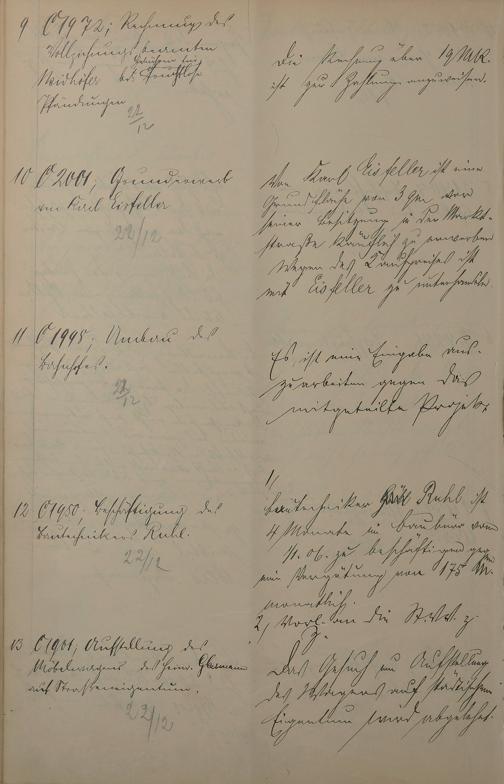 9 C 1972; Rechnung des
Vollziehungsbeamten
Weidhöfer bei fruchtlose
Pfändungen
22/12
Die Rechnung über 19 Mk.
ist zur Zahlung anzuweisen.
10 C 2001; Grunderwerb
von Karl Eisfeller
22/12
Von Karl Eisfeller ist eine
Grundfläche von 3 qm vor
seiner Besitzung in der Markt-
straße käuflich zu erwerben
Wegen des Kaufpreises ist
mit Eisfeller zu unterhandeln.
11 C 1995; Umbau des
Bahnhofes.
22/12
Es ist eine Eingabe aus-
zuarbeiten gegen das
mitgeteilte Projekt.
12 C 1950; Beschäftigung des
Bautechnikers Ruhl.
22/12
1/
Bautechniker Ruhl ist
4 Monate im Baubüro vom
11.06. zu beschäftigen gegen
eine Vergütung von 175 M.
monatlich.
2, Vorl. an die St.V.V. z.
13 C 1901; Aufstellung des
Möbelwagens des Heinr.
auf Straßeneigentum.
22/12
Das Gesuch um Aufstellung
des Wagens auf städtischem
Eigentum wird abgelehnt.